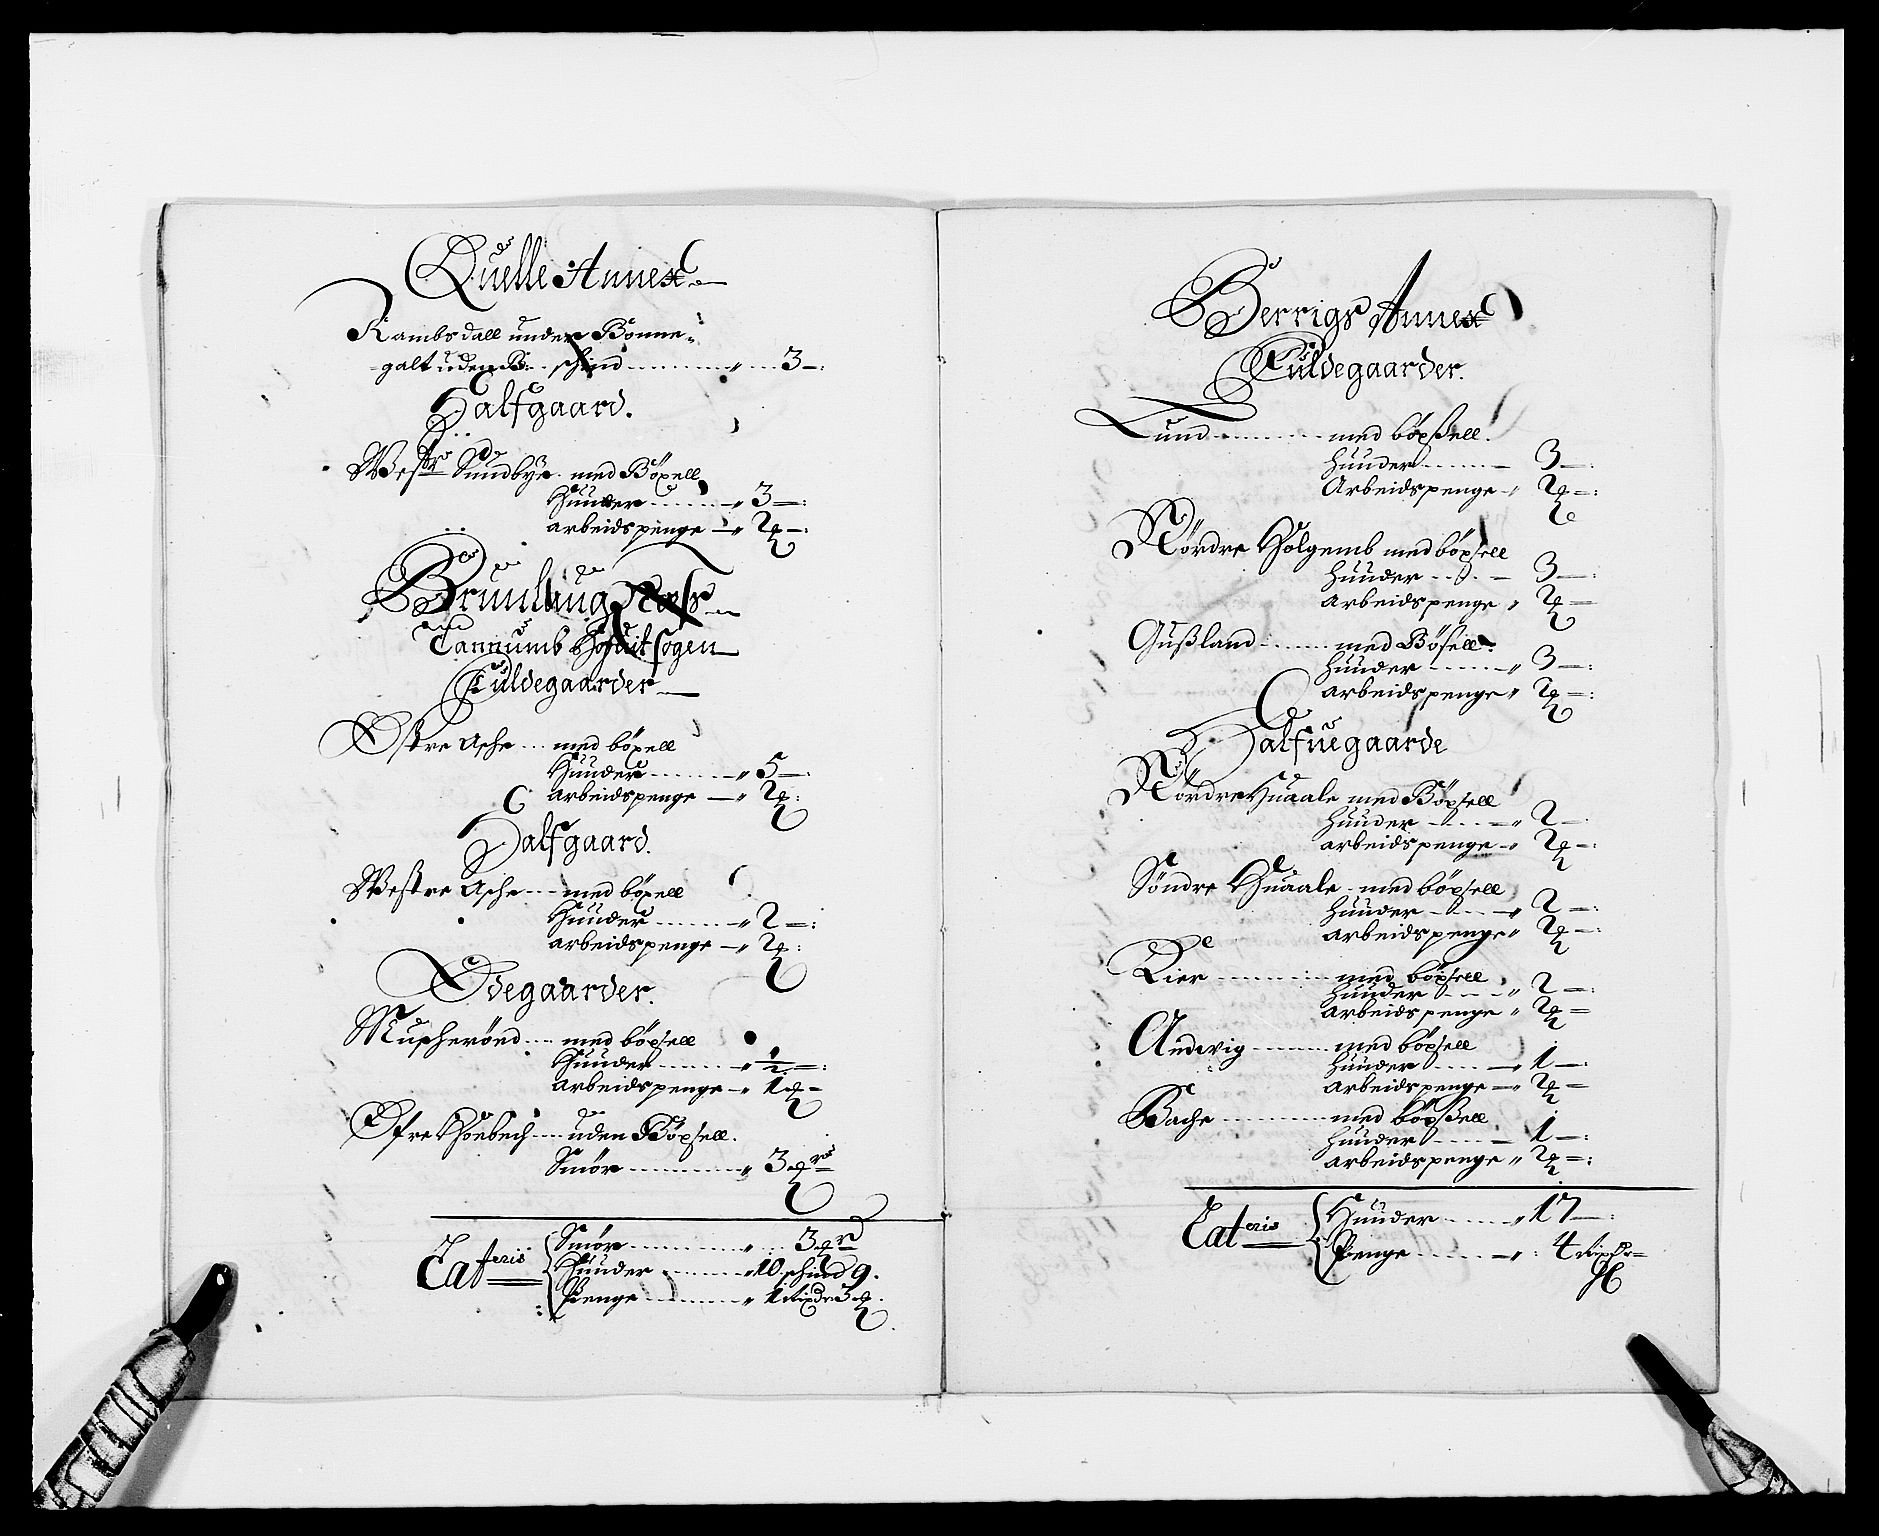 Quelle Annex
Rambsdall under Bonne-
galt uden B: schind 3
Halfgaard.
Westre Sundbye med Böxell
Huuder 3
arbeidspenge 2
Brunlaug Næss
Tannumb Hofuit sogen
Fuldegaarder
Østre Asche med böxell
Huuder 5
arbeidspenge 2
Halfgaard.
Westre Asche med böxell
Huuder 2
arbeidspenge 2
Ødegaarder.
Muscherönd med böxsell
Huuder 1/2
arbeidspenge 1
Øfre Hoebech uden Böxsell.
Smör 3
Lateris Smör 3
Huuder 10 schind 9.
Penge 1 Rixdr 3
Berrigs Annex
Fuldegaarder.
Lund med böxsell.
huuder 3
Arbeidspenge 2
Nordre Holgemb med böxsell
huuder 3
arbeidspenge 2
Gußland med Böxsell.
huuder 3
arbeidspenge 2
Halfuegaarde
Nordre Huaale med Böxsell
huuder 2
arbeidspenge 2
Söndre Huaale med böxsell
huuder 2
arbeidspenge 2
Lier med böxsell
huuder 2
arbeidspenge 2
Andwig med böxsell
huuder 1
arbeidspenge 2
Bache med böxsell
huuder 1
arbeidspenge 2
Lateris Huuder 17
Penge 4 Rixdr